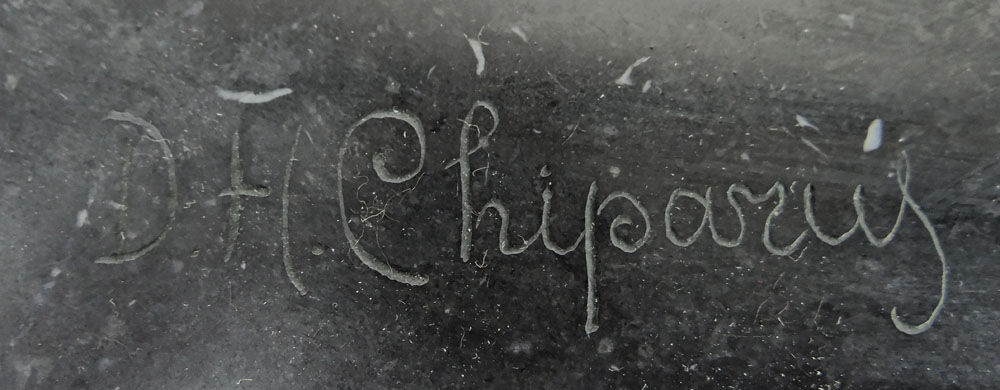 DH Chiparus